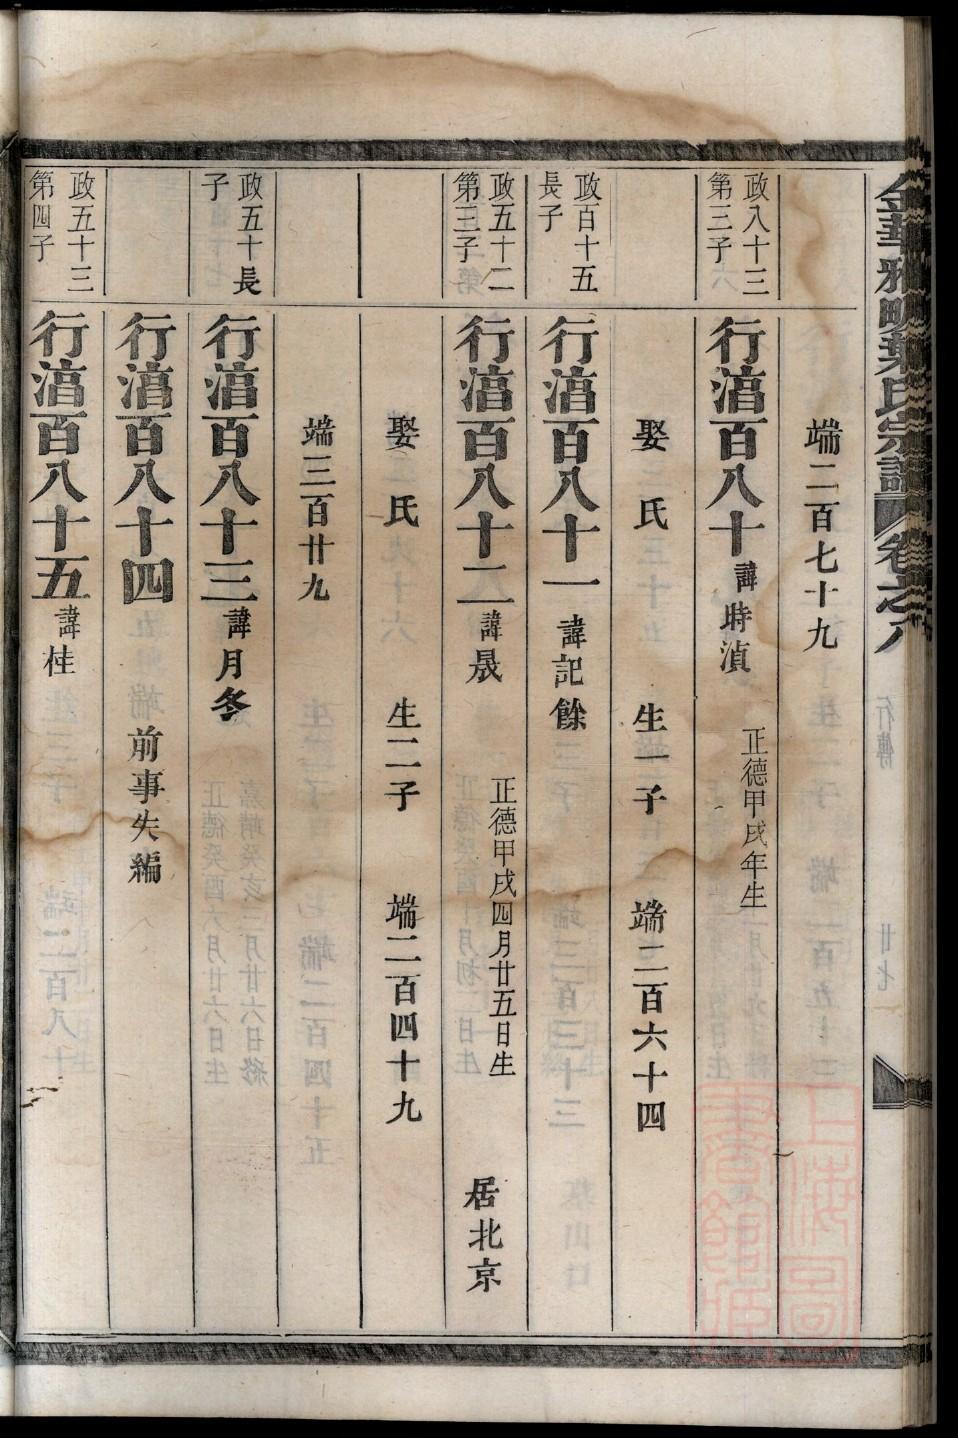 金華雅畈葉氏宗譜 卷之八 行傳 廿七
端二百七十九
政八十三
第三子
行湻百八十 諱時湞 正德甲戌年生
娶 氏 生一子 端二百六十四
政百十五
長子
行湻百八十一 諱記餘
政五十二
第三子
行湻百八十二 諱晟 正德甲戌四月廿五日生 居北京
娶 氏 生二子 端二百四十九
端三百廿九
政五十長
子
行湻百八十三 諱月冬
行湻百八十四 前事失編
政五十三
第四子
行湻百八十五 諱桂
上海圖書館藏